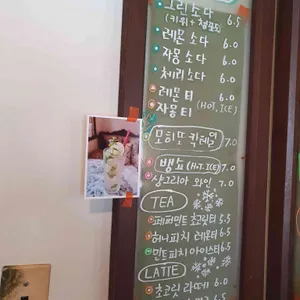 그린 소다 6.5
(키위+청포도)
레몬 소다 6.0
자몽 소다 6.0
체리 소다 6.0
레몬 티 6.0
자몽 티 (HOT. ICE)
모히또 칵테일 7.0
뱅쇼 (HOT. ICE) 7.0
샹그리아 와인 7.0
TEA
페퍼민트 초코릿티 5.5
허니피치 레몬티 6.5
민트피치 아이스티 6.5
LATTE
초코릿 라떼 6.0